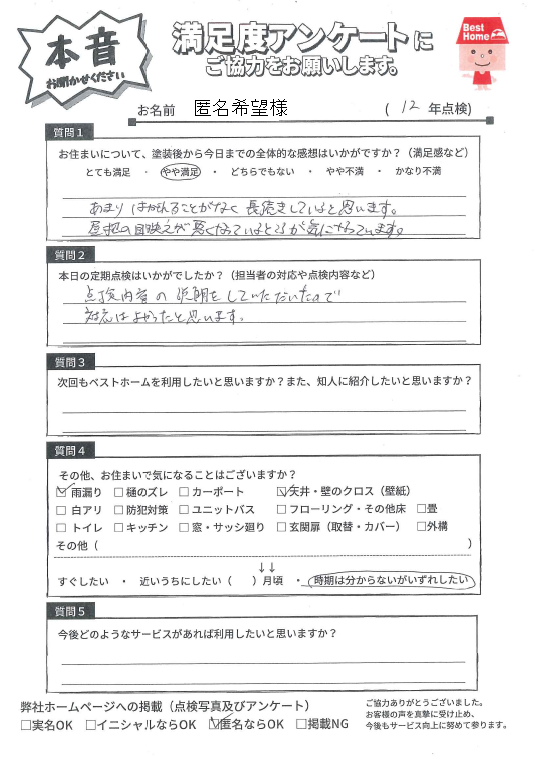 本音
お聞かせください
満足度アンケートに
ご協力をお願いします。
Best
Home
お名前 匿名希望様 ( 12 年点検)
質問1
お住まいについて、塗装後から今日までの全体的な感想はいかがですか？（満足感など）
とても満足 ・ やや満足 ・ どちらでもない ・ やや不満 ・ かなり不満
あまりはがれることがなく長続きしていると思います。
目地の見映えが悪くなっているところが気になっています。
質問2
本日の定期点検はいかがでしたか？（担当者の対応や点検内容など）
点検内容の説明をしていただいたので
対応はよかったと思います。
質問3
次回もベストホームを利用したいと思いますか？また、知人に紹介したいと思いますか？
質問4
その他、お住まいで気になることはございますか？
☑雨漏り □樋のズレ □カーポート ☑天井・壁のクロス（壁紙）
□白アリ □防犯対策 □ユニットバス □フローリング・その他床 □畳
□トイレ □キッチン □窓・サッシ廻り □玄関扉（取替・カバー） □外構
その他（ ）
↓↓
すぐしたい ・ 近いうちにしたい（ ）月頃 ・ 時期は分からないがいずれしたい
質問5
今後どのようなサービスがあれば利用したいと思いますか？
弊社ホームページへの掲載（点検写真及びアンケート）
□実名OK □イニシャルならOK ☑匿名ならOK □掲載NG
ご協力ありがとうございました。
お客様の声を真摯に受け止め、
今後もサービス向上に努めて参ります。